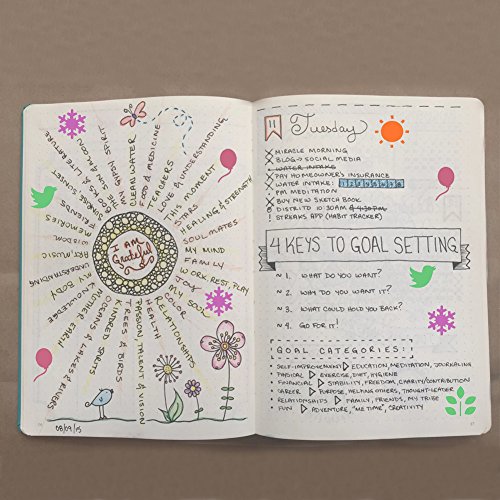 I AM
Grateful
CLEAN WATER
FOOD & MEDICINE
TEACHERS
LOVE & UNDERSTANDING
STARS
THIS MOMENT
HEALING & STRENGTH
SOUL MATES
MY MIND
FAMILY
WORK, REST, PLAY
JOY
MY SOUL
COLOR
RELATIONSHIPS
HEALTH
PASSION, TALENT & VISION
TREES & BIRDS
KINDRED SPIRITS
OCEANS & LAKES & RIVERS
MOTHER EARTH
KNOWLEDGE
MY BODY
UNDERSTANDING
ART/MUSIC
WISDOM
MEMORIES
FRIENDS
LITERATURE
SUN & MOON
GYPSY SPIRIT
08/09/15
11 Tuesday
MIRACLE MORNING
BLOG → SOCIAL MEDIA
WATER INTAKE
PAY HOMEOWNER'S INSURANCE
WATER INTAKE: 12345678
PM MEDITATION
BUY NEW SKETCH BOOK
DISTRITO 10:30AM @ 4:30PM
! STREAKS APP (HABIT TRACKER)
4 KEYS TO GOAL SETTING
~ 1. WHAT DO YOU WANT?
~ 2. WHY DO YOU WANT IT?
~ 3. WHAT COULD HOLD YOU BACK?
~ 4. GO FOR IT!
GOAL CATEGORIES:
SELF-IMPROVEMENT ▷ EDUCATION, MEDITATION, JOURNALING
PHYSICAL ▷ EXERCISE, DIET, HYGIENE
FINANCIAL ▷ STABILITY, FREEDOM, CHARITY/CONTRIBUTION
CAREER ▷ PURPOSE, HELPING OTHERS, THOUGHT-LEADER
RELATIONSHIPS ▷ FAMILY, FRIENDS, MY TRIBE
FUN ▷ ADVENTURE, "ME TIME", CREATIVITY